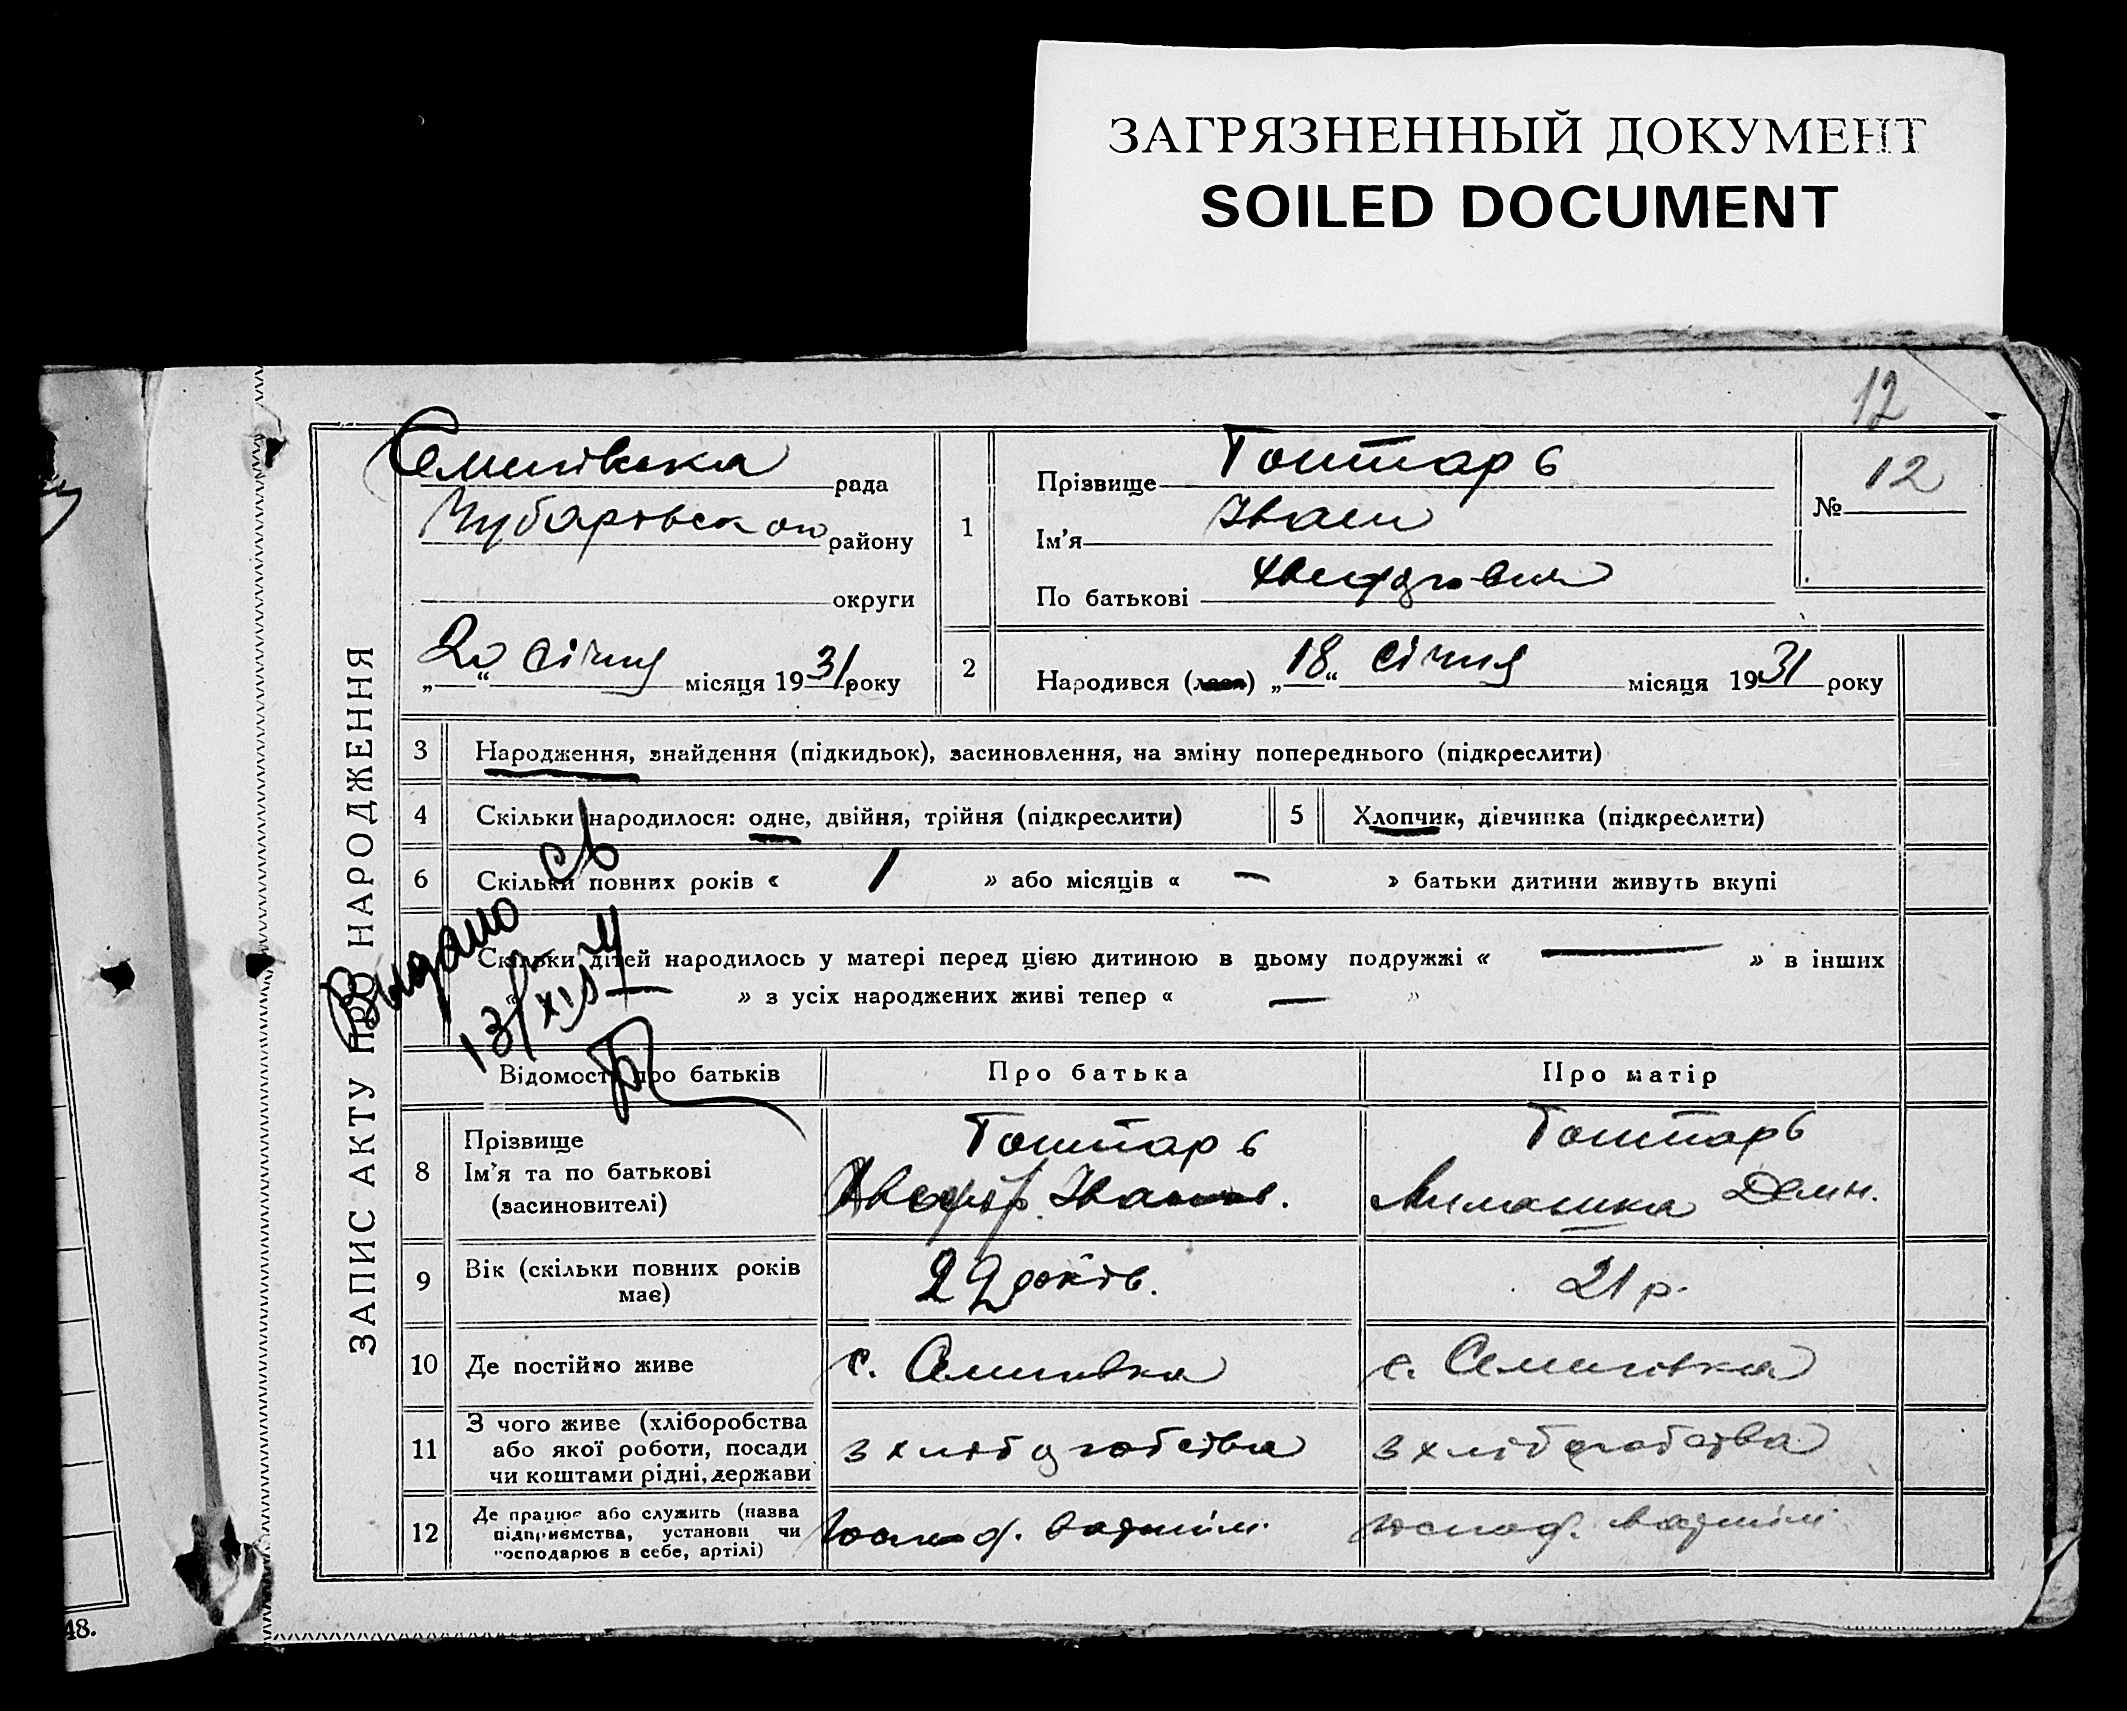 ЗАГРЯЗНЕННЫЙ ДОКУМЕНТ
SOILED DOCUMENT
12
ЗАПИС АКТУ ПРО НАРОДЖЕННЯ
Семенівська рада
Чубарівського району
округи
„20“ січня місяця 1931 року
1
Прізвище Гоштарь
Ім'я Іван
По батькові
№ 12
2
Народився (лася) „18“ січня місяця 1931 року
3 Народження, знайдення (підкидьок), засиновлення, на зміну попереднього (підкреслити)
4 Скільки народилося: одне, двійня, трійня (підкреслити)
5 Хлопчик, дівчинка (підкреслити)
6 Скільки повних років « 1 » або місяців « — » батьки дитини живуть вкупі
Скільки дітей народилось у матері перед цією дитиною в цьому подружжі « — » в інших
« — » з усіх народжених живі тепер « — »
Выдано св
13/XI 54
Відомості про батьків Про батька Про матір
8 Прізвище
Ім'я та по батькові
(засиновителі)
Гоштарь
Іванов.
Гоштарь
Демн.
9 Вік (скільки повних років
має)
22 років.
21 р.
10 Де постійно живе
с. Семенівка
с. Семенівка
11 З чого живе (хліборобства
або якої роботи, посади
чи коштами рідні, держави
з хліборобства
з хліборобства
12 Де працює або служить (назва
підприємства, установи чи
господарює в себе, артілі)
48.